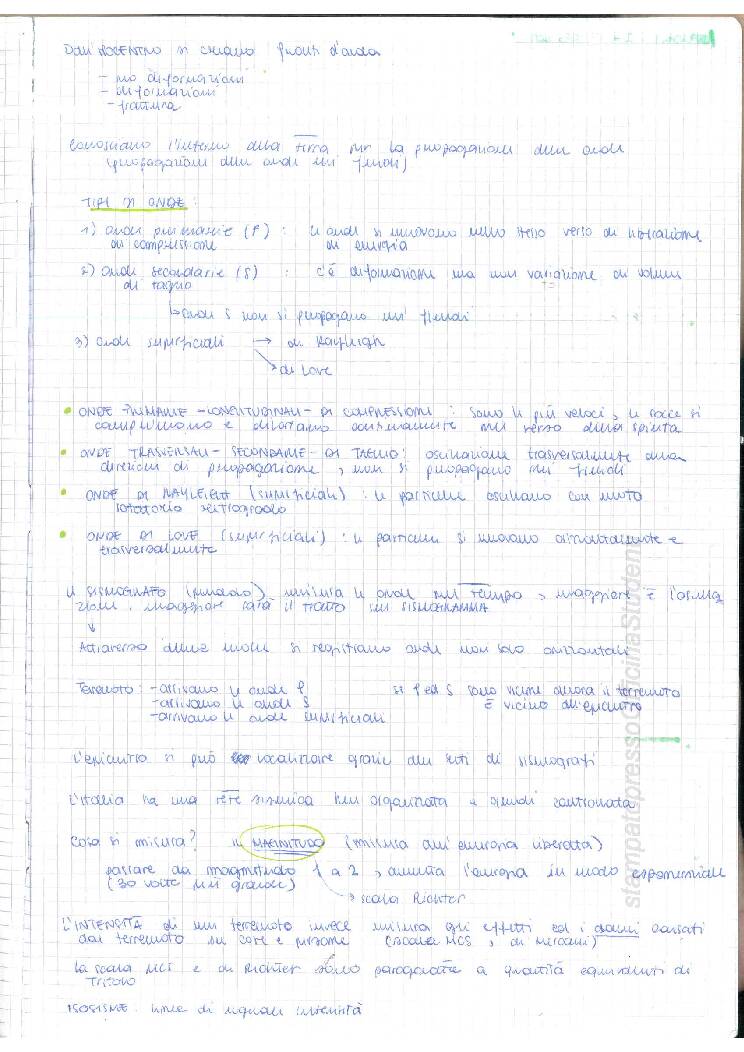 Dall'IPOCENTRO si creano fronti d'onda
- no deformazioni
- deformazioni
- frattura
Conosciamo l'interno della terra per la propagazione delle onde
(propagazione delle onde nei fluidi)
TIPI DI ONDE:
1) onde primarie (P) : le onde si muovono nello stesso verso di liberazione
di compressione di energia
2) onde secondarie (S) : c'è deformazione ma non variazione di volume
di taglio
↳ onde S non si propagano nei fluidi
3) onde superficiali → di Rayleigh
↘ di Love
• ONDE PRIMARIE - LONGITUDINALI - DI COMPRESSIONE : sono le più veloci, le rocce si
comprimono e dilatano nel verso della spinta
• ONDE TRASVERSALI - SECONDARIE - DI TAGLIO: oscillazione trasversalmente alla
direzione di propagazione, non si propagano nei fluidi
• ONDE DI RAYLEIGH (superficiali) : le particelle oscillano con moto
rotatorio retrogrado
• ONDE DI LOVE (superficiali) : le particelle si muovono orizzontalmente e
trasversalmente
Il SISMOGRAFO (pendolo) misura le onde nel tempo, maggiore è l'oscilla
zione, maggiore sarà il tratto sul SISMOGRAMMA
↓
Attraverso delle molle si registrano onde non solo orizzontali
Terremoto : - arrivano le onde P se P ed S sono vicine allora il terremoto
- arrivano le onde S è vicino all'epicentro
- arrivano le onde superficiali
L'epicentro si può localizzare grazie alle reti di sismografi
L'Italia ha una rete sismica ben organizzata e quindi controllata
Cosa si misura? la MAGNITUDO (misura dell'energia liberata)
passare da magnitudo 1 a 2, aumenta l'energia in modo esponenziale
(30 volte più grande) → scala Richter
L'INTENSITÀ di un terremoto invece misura gli effetti ed i danni causati
dal terremoto su cose e persone (scala MCS, di Mercalli)
La scala MCS e di Richter sono paragonate a quantità equivalenti di
tritolo
ISOSISME: linee di uguale intensità
stampatopressoOfficinaStudenti